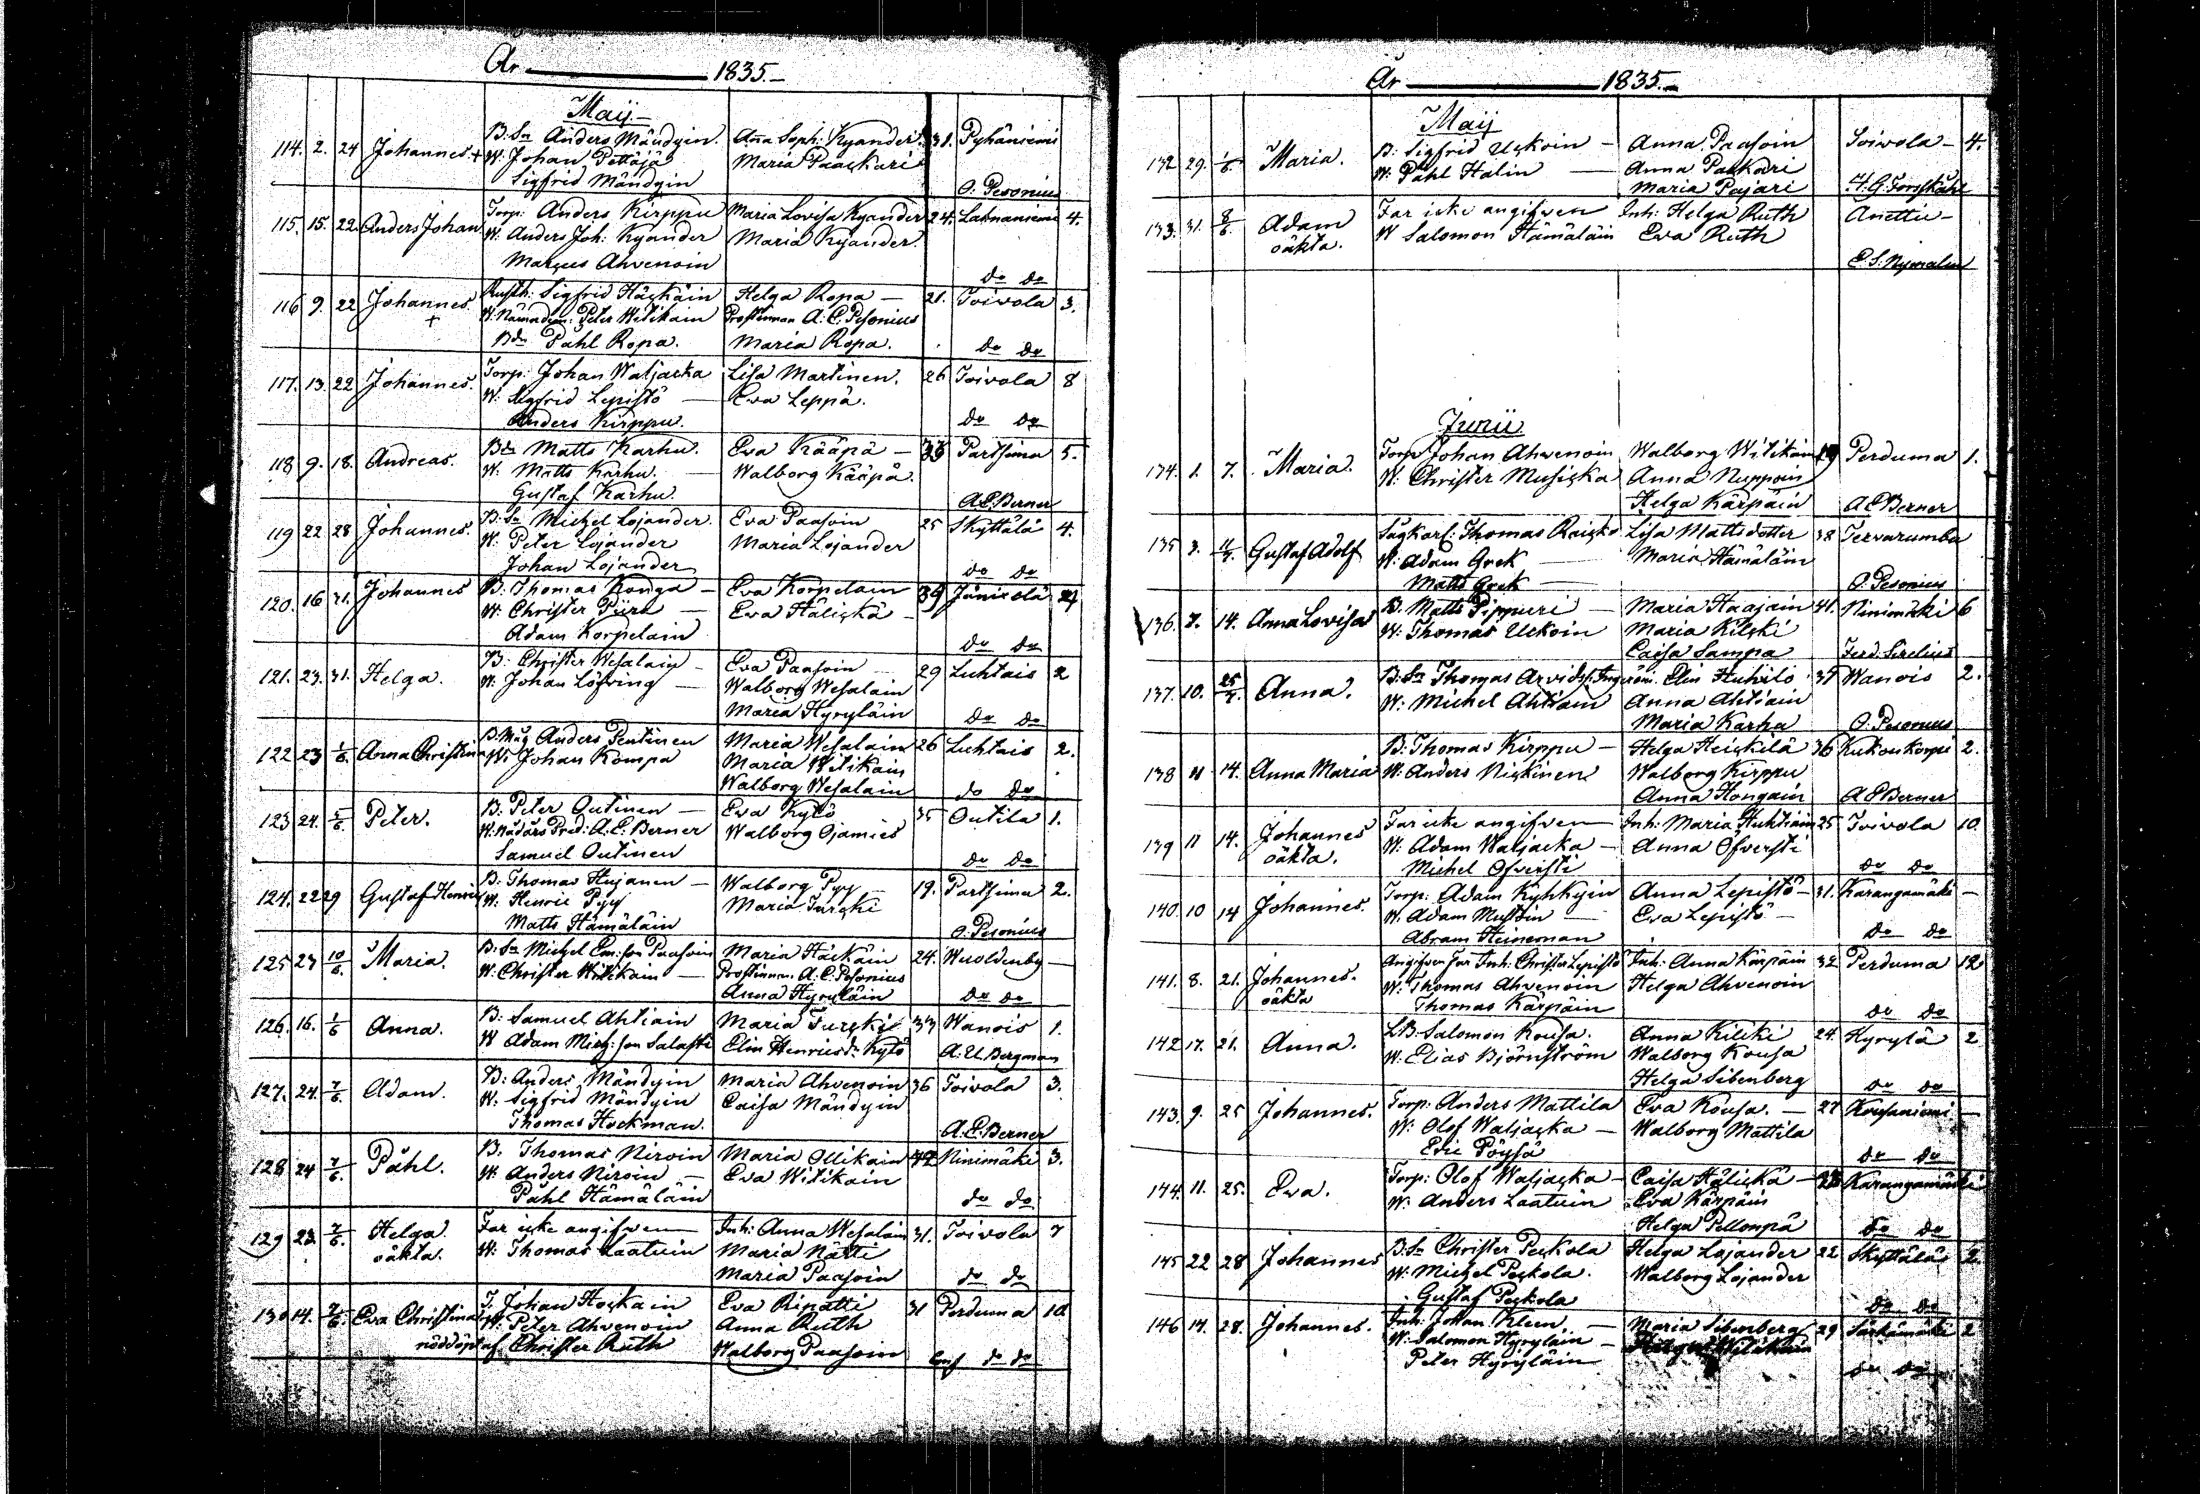 År 1835.
Maij
114. 2. 24 Johannes + B. Sn Anders Mändyin. Anna Soph: Kyander. 31. Pyhäniemi
W. Johan Pettäjä Maria Paaskari
Sigfrid Mändyin O. Pesonius
115. 15. 22 Anders Johan Torp: Anders Kirppu Maria Lovisa Kyander 24. Lahnaniemi 4.
W. Anders Joh: Kyander Maria Kyander.
Marcus Ahvenoin do do
116 9. 22 Johannes + Rusth: Sigfrid Häskäin Helga Ropa — 21. Toivola 3.
W. Nämndem: Peter Witikain Prostinnan A: C. Pesonius
Bdn Påhl Ropa. Maria Ropa. do do
117. 13. 22 Johannes. Torp: Johan Waljacka Lisa Martinen. 26 Toivola 8
W. Sigfrid Lepistö — Eva Leppä.
Anders Kirppu. do do
118 9. 18. Andreas. Bdn Matts Karhu. Eva Kääpä — 33 Partsima 5.
W. Matts Karhu. — Walborg Kääpä.
Gustaf Karhu. A E Berner
119 22 28 Johannes. B. Sn Michel Lojander. Eva Paasoin 25 Skyttälä 4.
W. Peter Lojander Maria Lojander
Johan Lojander do do
120. 16 31. Johannes B. Thomas Konga — Eva Korpelain 39 Jänisolä
W. Christer Piira — Eva Häliskä —
Adam Korpelain do do
121. 23. 31. Helga. B: Christer Wesalain — Eva Paasoin 29 Luhtais 2
W. Johan Löfving — Walborg Wesalain
Maria Hyryläin do do
122 23 1/6. Anna Christina B. Måg Anders Pentinen Maria Wesalain 26 Luhtais 2.
W. Johan Kompa Maria Witikain
Walborg Wesalain do do
123 24. 5/6. Peter. B. Peter Outinen — Eva Kytö 35 Outila 1.
W. Nådårs Pred: A. E. Berner Walborg Ojamies
Samuel Outinen do do
124. 22 29 Gustaf Henric B. Thomas Hujanen — Walborg Pyy — 19. Partsima 2.
W. Henric Pyy Maria Turcki
Matts Hämäläin O. Pesonius
125 27 10/6. Maria. B. Sn Michel Em: son Paasoin Maria Häskäin 24. Wuoldenby —
W. Christer Witikain — Prostinnan A. C. Pesonius
Anna Hyryläin do do
126. 16. 1/6 Anna. B: Samuel Ahtiain Maria Turcki 33 Wanois 1.
W Adam Mich: son Salasti Elin Henricsdr Kytö A. U. Bergman
127. 24. 7/6. Adam. B: Anders Mändyin Maria Ahvenoin 36 Toivola 3.
W. Sigfrid Mändyin Caisa Mändyin
Thomas Hockman. A. E. Berner
128 24 7/6. Påhl. B. Thomas Niroin Maria Ollikain 42 Ninimäki 3.
W. Anders Niroin — Eva Witikain
Påhl Hämäläin do do
129 23. 7/6. Helga oäkta. Far icke angifven Inh: Anna Wesalain 31. Toivola 7
W: Thomas Laatuin Maria Nätti
Maria Paasoin do do
130 14. 7/6. Eva Christina T. Johan Hockain Eva Ripatti 31 Perduma 10
W. Peter Ahvenoin Anna Ruth
nöddöpt af Christer Ruth Walborg Paasoin Conf do do
År 1835.
Maij
132 29. 1/6. Maria. B: Sigfrid Uckoin — Anna Paasoin Toivola — 4.
W: Påhl Halin — Anna Paskari
Maria Pajari H. G. Forsskåhl
133. 31. 8/6. Adam oäkta. Far icke angifven Inh: Helga Ruth Anettu —
W Salomon Hämäläin Eva Ruth
E. S. Nymalm
Junii
134. 1. 7. Maria. Torp Johan Ahvenoin Walborg Witikain 19 Perduma 1.
W: Christer Musicka Anna Nuppoin
Helga Kärpäin A E Berner
135 3. 11/7. Gustaf Adolf Sågkarl: Thomas Raicko Lisa Mattsdotter 38 Tervarumba
W. Adam Grek — Maria Hämäläin
Matts Grek — O. Pesonius
136. 7. 14. Anna Lovisa B. Matts Pippuri — Maria Haajain 41. Ninimäki 6
W: Thomas Uckoin Maria Kilcki
Caisa Sampa Ferd. Sirelius
137. 10. 25/7. Anna. B: Sn Thomas Arvids: Ingroin. Elin Huhvilo 37 Wanois 2.
W: Michel Ahtiain Anna Ahtiain
Maria Karha O. Pesonius
138 11 14. Anna Maria B: Thomas Kirppu — Helga Heickelä 36 Kukonkorpi 2.
W. Anders Nickinen Walborg Kirppu
Anna Hongain A E Berner
139 11 14. Johannes oäkta. Far icke angifven Inh: Maria Huhtiain 25 Toivola 10.
W: Adam Waljacka — Anna Öfversti
Michel Öfversti do do
140. 10 14 Johannes. Torp: Adam Kyhkyin Anna Lepistö — 31. Karangamäki —
W. Adam Mustoin — Eva Lepistö —
Abram Heinoman do do
141. 8. 21. Johannes. oäkta Angifven far Inh: Christer Lepistö Inh: Anna Kärpäin 32 Perduma 12
W: Thomas Ahvenoin Helga Ahvenoin
Thomas Kärpäin do do
142 17. 21. Anna. L.B: Salomon Kousa. Anna Kilcki 24. Hyrylä 2
W. Elias Björnström Walborg Kousa
Helga Sibenberg do do
143. 9. 25 Johannes. Torp: Anders Mattila Eva Kousa. — 27 Kousaniemi —
W: Olof Waljacka — Walborg Mattila
Eric Pöysä do do
144. 11. 25. Eva. Torp: Olof Waljacka — Caisa Hälickä — Karangamäki
W: Anders Laatuin Eva Kärpäin
Helga Pellonpä do do
145 22 28 Johannes B: Sn Christer Peckola Helga Lojander 22 Skyttälä 2.
W. Michel Peckola. Walborg Lojander
Gustaf Peckola do do
146 14. 28. Johannes. Inh: Johan Kleen — Maria Sibenberg 29 Särkämäki 2
W: Salomon Hyryläin —
Peter Hyryläin do do